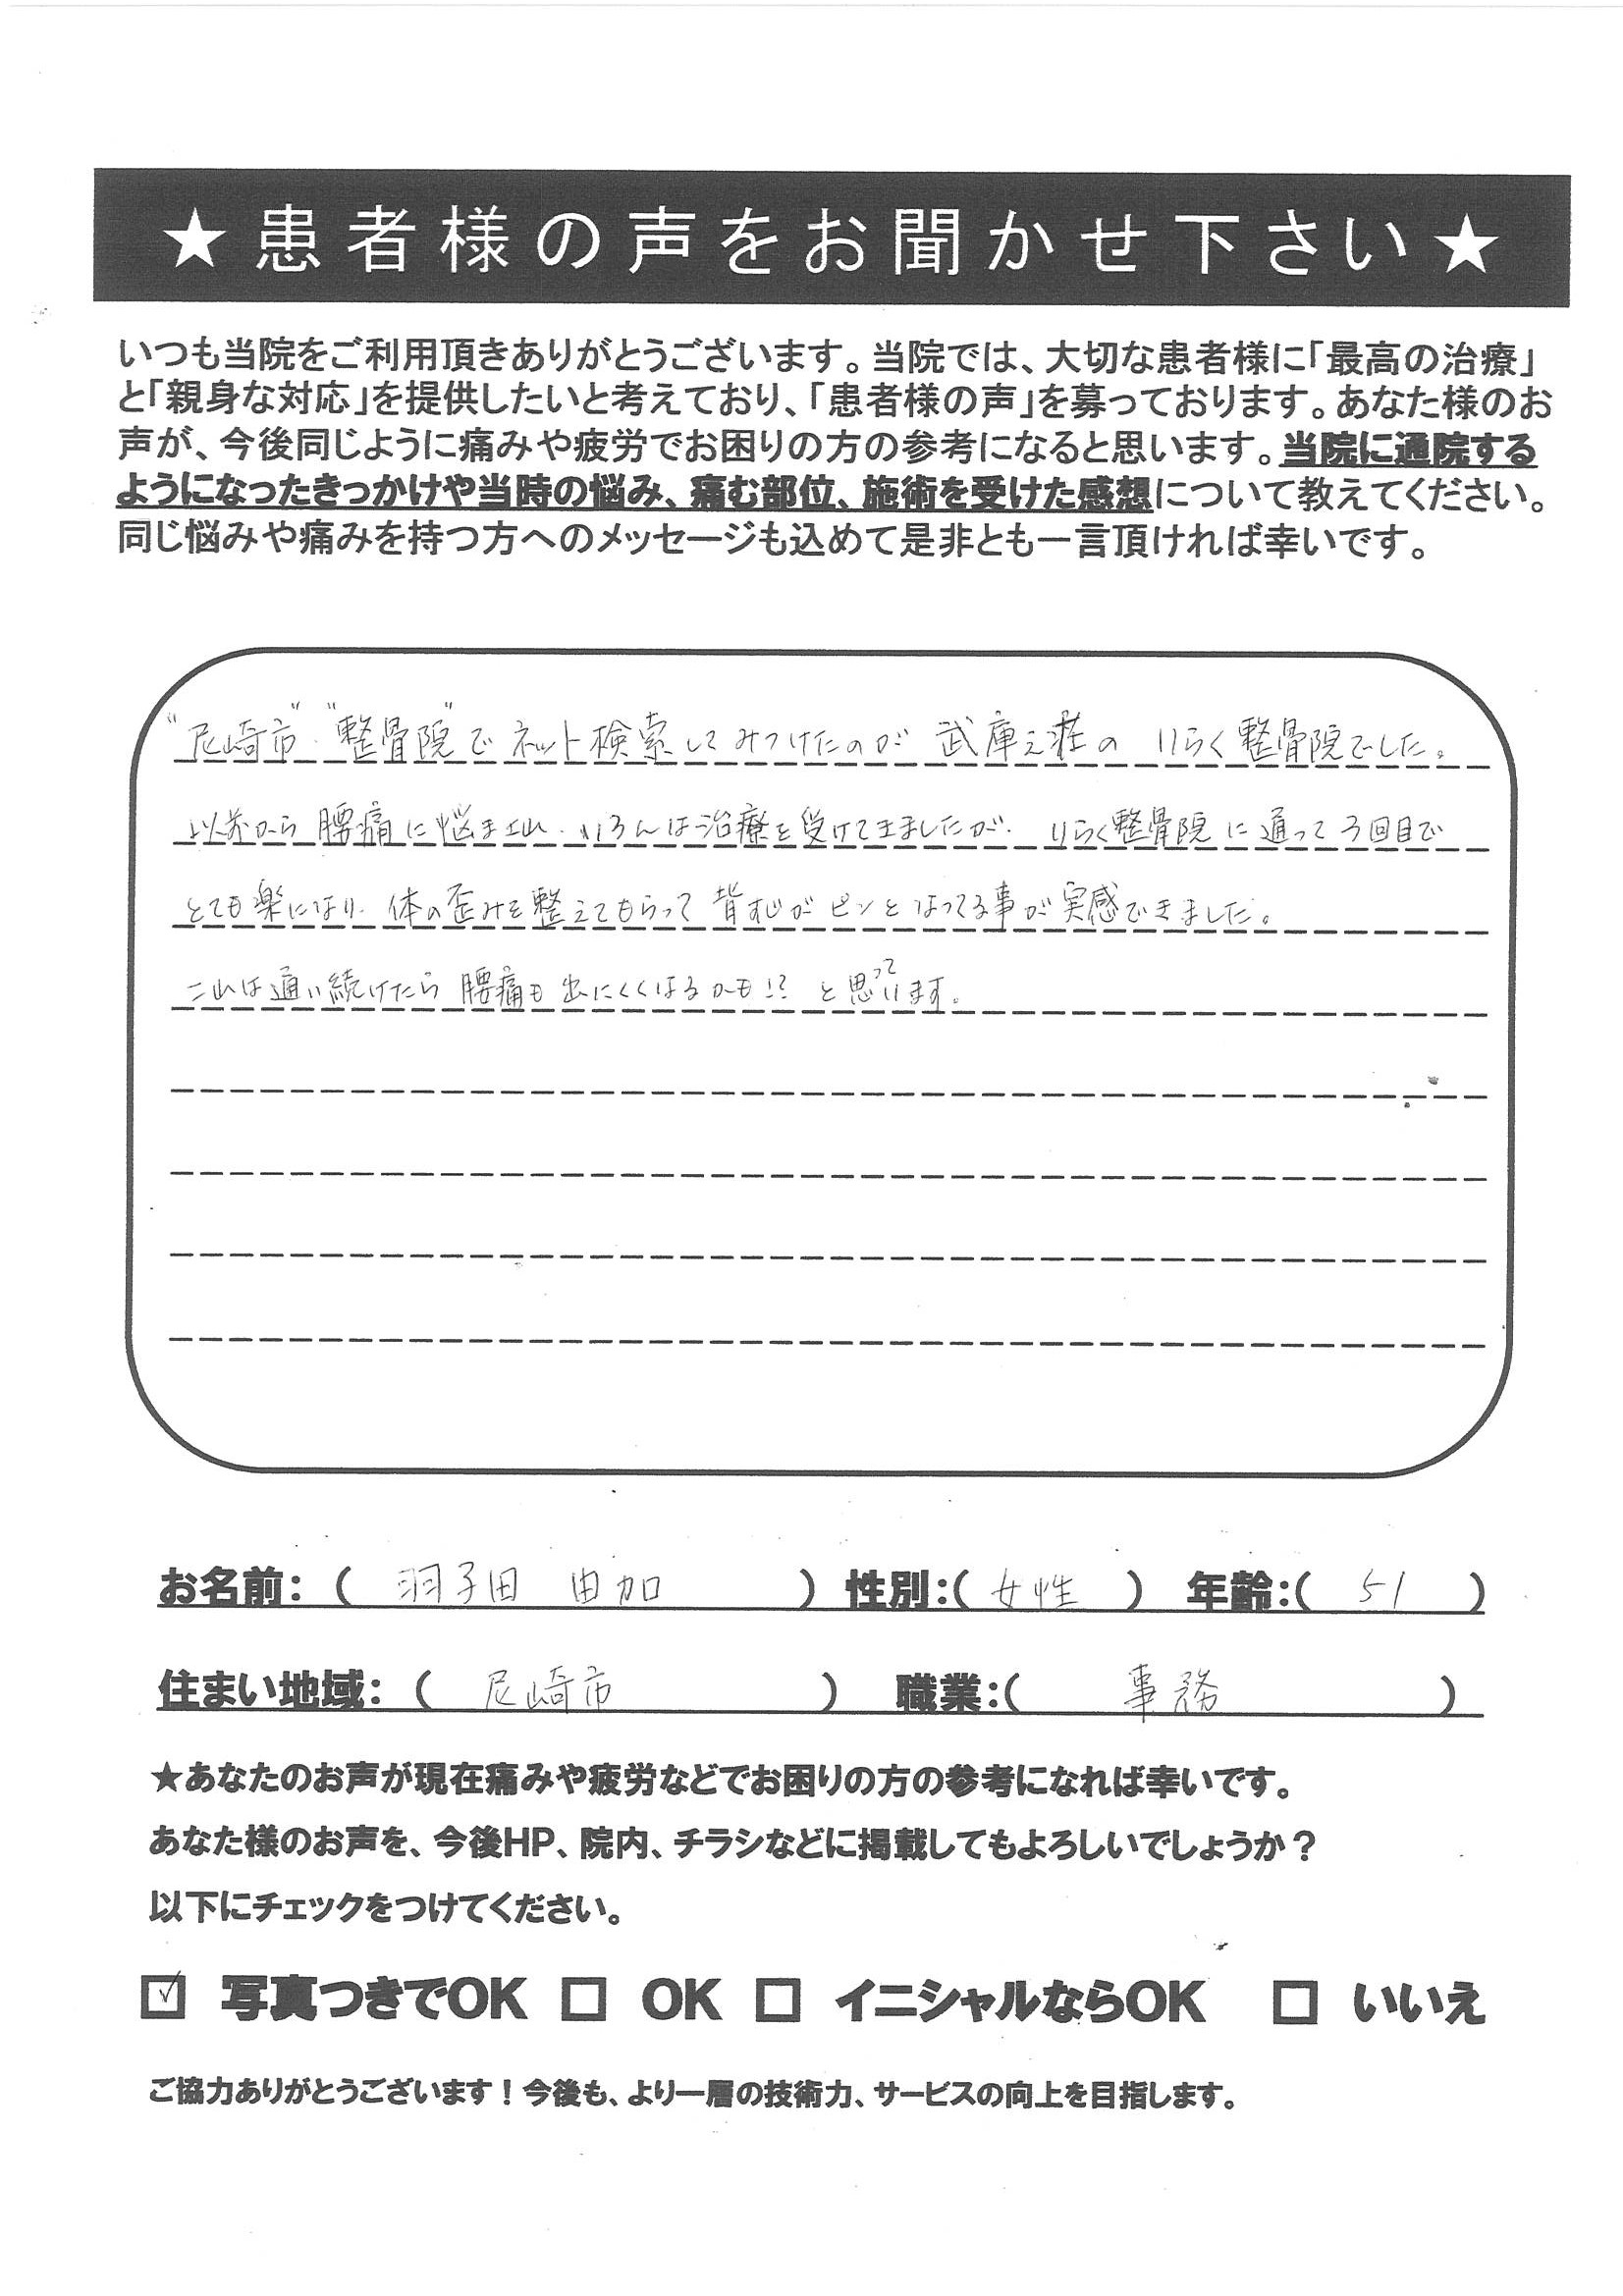 ★患者様の声をお聞かせ下さい★
いつも当院をご利用頂きありがとうございます。当院では、大切な患者様に「最高の治療」
と「親身な対応」を提供したいと考えており、「患者様の声」を募っております。あなた様のお
声が、今後同じように痛みや疲労でお困りの方の参考になると思います。当院に通院する
ようになったきっかけや当時の悩み、痛む部位、施術を受けた感想について教えてください。
同じ悩みや痛みを持つ方へのメッセージも込めて是非とも一言頂ければ幸いです。
"尼崎市" "整骨院"でネット検索してみつけたのが 武庫之荘の りらく整骨院でした。
以前から腰痛に悩まされ、いろんな治療を受けてきましたが、りらく整骨院に通って3回目で
とても楽になり、体の歪みを整えてもらって背すじがピンとなってる事が実感できました。
これは通い続けたら腰痛も出にくくなるかも!? と思っています。
お名前：（ 羽子田 由加 ）性別：（ 女性 ） 年齢：（ 51 ）
住まい地域：（ 尼崎市 ） 職業：（ 事務 ）
★あなたのお声が現在痛みや疲労などでお困りの方の参考になれば幸いです。
あなた様のお声を、今後HP、院内、チラシなどに掲載してもよろしいでしょうか？
以下にチェックをつけてください。
☑ 写真つきでOK □ OK □ イニシャルならOK □ いいえ
ご協力ありがとうございます！今後も、より一層の技術力、サービスの向上を目指します。